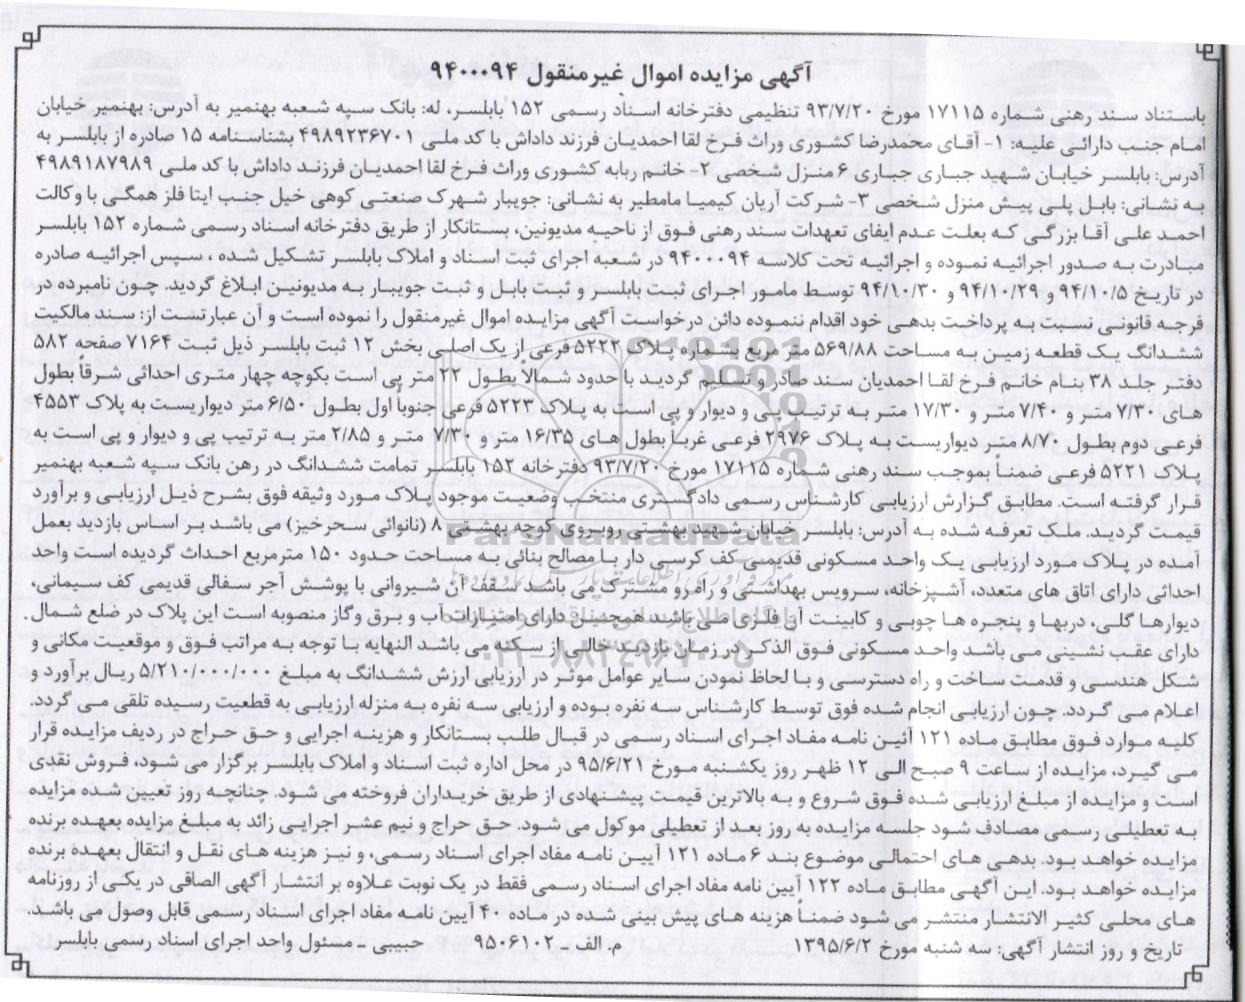 آگهی مزایده اموال غیرمنقول ۹۴۰۰۰۹۴
باستناد سند رهنی شماره ۱۷۱۱۵ مورخ ۹۳/۷/۲۰ تنظیمی دفترخانه اسناد رسمی ۱۵۲ بابلسر، له: بانک سپه شعبه بهنمیر به آدرس: بهنمیر خیابان
امام جنب دارائی علیه: ۱- آقای محمدرضا کشوری وراث فرخ لقا احمدیان فرزند داداش با کد ملی ۴۹۸۹۲۳۶۷۰۱ بشناسنامه ۱۵ صادره از بابلسر به
آدرس: بابلسر خیابان شهید جباری جباری ۶ منزل شخصی ۲- خانم ربابه کشوری وراث فرخ لقا احمدیان فرزند داداش با کد ملی ۴۹۸۹۱۸۷۹۸۹
به نشانی: بابل پلی پیش منزل شخصی ۳- شرکت آریان کیمیا مامطیر به نشانی: جویبار شهرک صنعتی کوهی خیل جنب ایتا فلز همگی با وکالت
احمد علی آقا بزرگی که بعلت عدم ایفای تعهدات سند رهنی فوق از ناحیه مدیونین، بستانکار از طریق دفترخانه اسناد رسمی شماره ۱۵۲ بابلسر
مبادرت به صدور اجرائیه نموده و اجرائیه تحت کلاسه ۹۴۰۰۰۹۴ در شعبه اجرای ثبت اسناد و املاک بابلسر تشکیل شده ، سپس اجرائیه صادره
در تاریخ ۹۴/۱۰/۵ و ۹۴/۱۰/۲۹ و ۹۴/۱۰/۳۰ توسط مامور اجرای ثبت بابلسر و ثبت بابل و ثبت جویبار به مدیونین ابلاغ گردید. چون نامبرده در
فرجه قانونی نسبت به پرداخت بدهی خود اقدام ننموده دائن درخواست آگهی مزایده اموال غیرمنقول را نموده است و آن عبارتست از: سند مالکیت
ششدانگ یک قطعه زمین به مساحت ۵۶۹/۸۸ متر مربع بشماره پلاک ۵۲۲۲ فرعی از یک اصلی بخش ۱۲ ثبت بابلسر ذیل ثبت ۷۱۶۴ صفحه ۵۸۲
دفتر جلد ۳۸ بنام خانم فرخ لقا احمدیان سند صادر و تسلیم گردید با حدود شمالاً بطول ۲۲ متر پی است بکوچه چهار متری احداثی شرقاً بطول
های ۷/۳۰ متر و ۷/۴۰ متر و ۱۷/۳۰ متر به ترتیب پی و دیوار و پی است به پلاک ۵۲۲۳ فرعی جنوباً اول بطول ۶/۵۰ متر دیواریست به پلاک ۴۵۵۳
فرعی دوم بطول ۸/۷۰ متر دیواریست به پلاک ۲۹۷۶ فرعی غرباً بطول های ۱۶/۳۵ متر و ۷/۳۰ متر و ۲/۸۵ متر به ترتیب پی و دیوار و پی است به
پلاک ۵۲۲۱ فرعی ضمناً بموجب سند رهنی شماره ۱۷۱۱۵ مورخ ۹۳/۷/۲۰ دفترخانه ۱۵۲ بابلسر تمامت ششدانگ در رهن بانک سپه شعبه بهنمیر
قرار گرفته است. مطابق گزارش ارزیابی کارشناس رسمی دادگستری منتخب وضعیت موجود پلاک مورد وثیقه فوق بشرح ذیل ارزیابی و برآورد
قیمت گردید. ملک تعرفه شده به آدرس: بابلسر خیابان شهید بهشتی روبروی کوچه بهشتی ۸ (نانوائی سحرخیز) می باشد بر اساس بازدید بعمل
آمده در پلاک مورد ارزیابی یک واحد مسکونی قدیمی کف کرسی دار با مصالح بنائی به مساحت حدود ۱۵۰ مترمربع احداث گردیده است واحد
احداثی دارای اتاق های متعدد، آشپزخانه، سرویس بهداشتی و راهرو مشترک می باشد سقف آن شیروانی با پوشش آجر سفالی قدیمی کف سیمانی،
دیوارها گلی، دربها و پنجره ها چوبی و کابینت آن فلزی می باشد همچنین دارای امتیازات آب و برق وگاز منصوبه است این پلاک در ضلع شمال
دارای عقب نشینی می باشد واحد مسکونی فوق الذکر در زمان بازدید خالی از سکنه می باشد النهایه با توجه به مراتب فوق و موقعیت مکانی و
شکل هندسی و قدمت ساخت و راه دسترسی و با لحاظ نمودن سایر عوامل موثر در ارزیابی ارزش ششدانگ به مبلغ ۵/۲۱۰/۰۰۰/۰۰۰ ریال برآورد و
اعلام می گردد چون ارزیابی انجام شده فوق توسط کارشناس سه نفره بوده و ارزیابی سه نفره به منزله ارزیابی به قطعیت رسیده تلقی می گردد.
کلیه موارد فوق مطابق ماده ۱۲۱ آئین نامه مفاد اجرای اسناد رسمی در قبال طلب بستانکار و هزینه اجرایی و حق حراج در ردیف مزایده قرار
می گیرد، مزایده از ساعت ۹ صبح الی ۱۲ ظهر روز یکشنبه مورخ ۹۵/۶/۲۱ در محل اداره ثبت اسناد و املاک بابلسر برگزار می شود، فروش نقدی
است و مزایده از مبلغ ارزیابی شده فوق شروع و به بالاترین قیمت پیشنهادی از طریق خریداران فروخته می شود. چنانچه روز تعیین شده مزایده
به تعطیلی رسمی مصادف شود جلسه مزایده به روز بعد از تعطیلی موکول می شود. حق حراج و نیم عشر اجرایی زائد به مبلغ مزایده بعهده برنده
مزایده خواهد بود. بدهی های احتمالی موضوع بند ۶ ماده ۱۲۱ آیین نامه مفاد اجرای اسناد رسمی، و نیز هزینه های نقل و انتقال بعهده برنده
مزایده خواهد بود. این آگهی مطابق ماده ۱۲۲ آیین نامه مفاد اجرای اسناد رسمی فقط در یک نوبت علاوه بر انتشار آگهی الصاقی در یکی از روزنامه
های محلی کثیر الانتشار منتشر می شود ضمناً هزینه های پیش بینی شده در ماده ۴۰ آیین نامه مفاد اجرای اسناد رسمی قابل وصول می باشد.
تاریخ و روز انتشار آگهی: سه شنبه مورخ ۱۳۹۵/۶/۲ م.الف. ۹۵۰۶۱۰۲ حبیبی - مسئول واحد اجرای اسناد رسمی بابلسر
ParsNamadData
۰۲۱-۸۸۳۴۹۶۷۰-۵